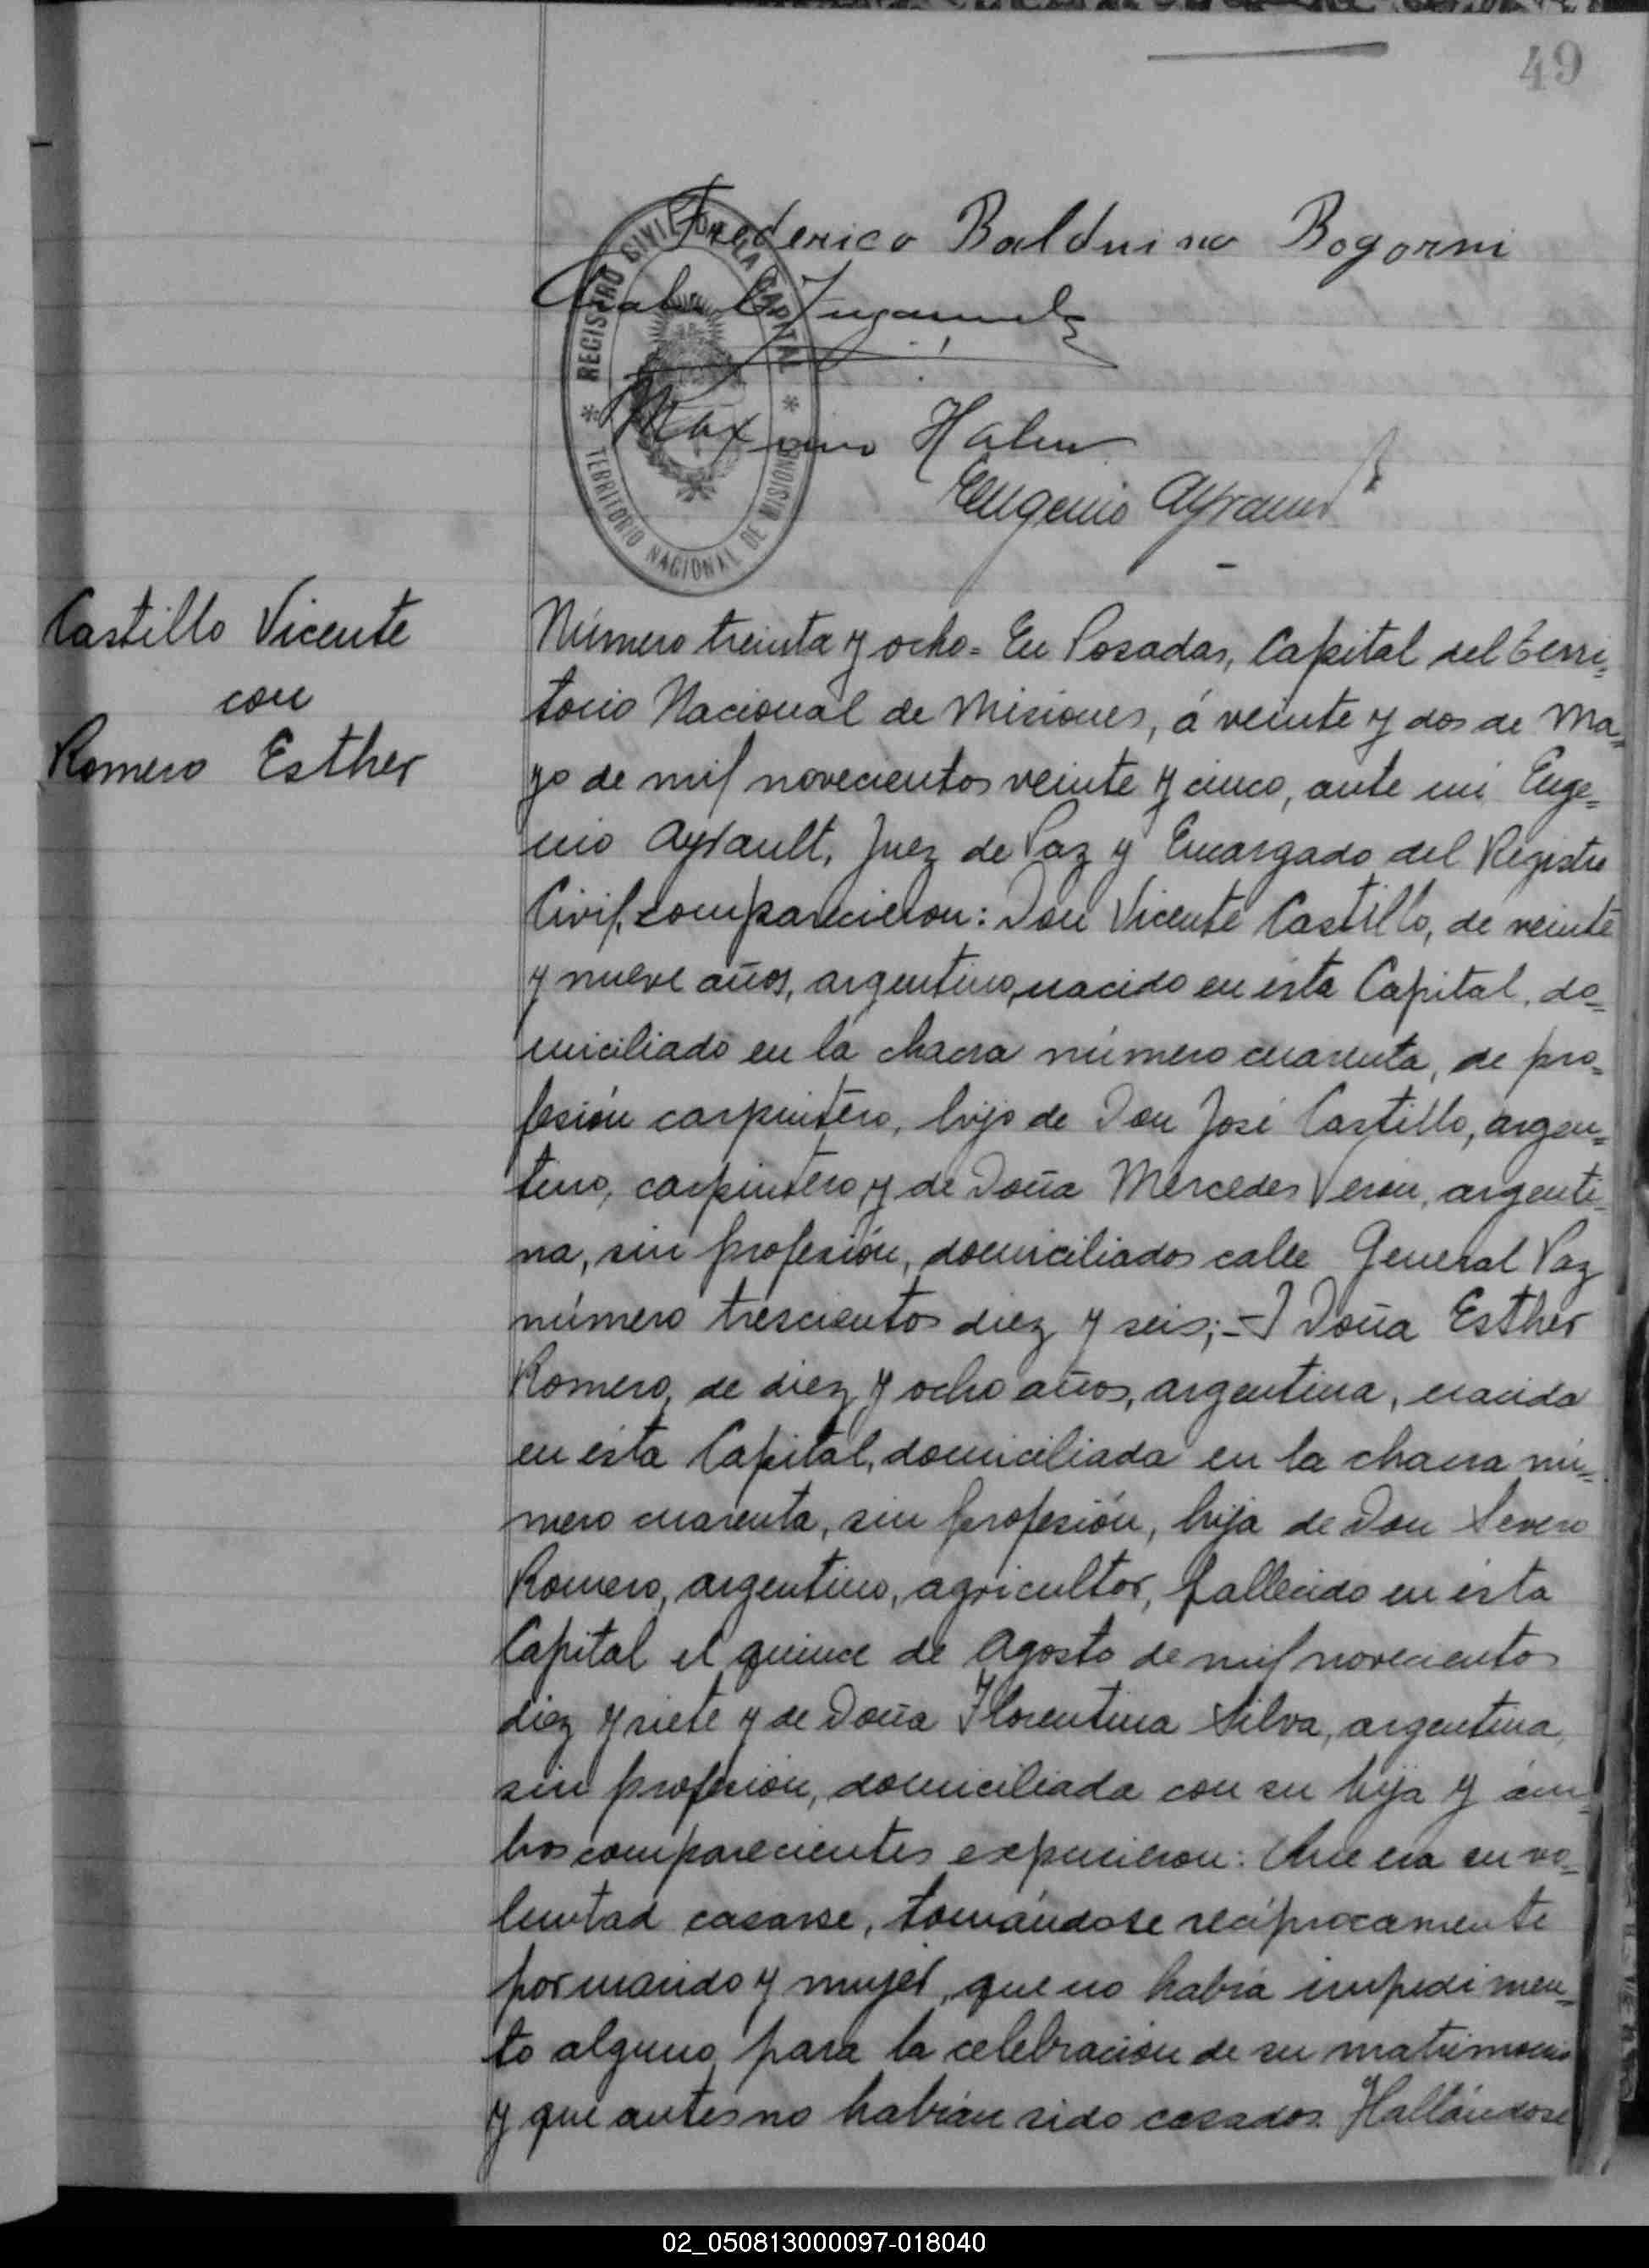 49
Frederico Balduino Bogorni
REGISTRO CIVIL DE LA CAPITAL
* TERRITORIO NACIONAL DE MISIONES *
Maximo Hahn
Eugenio Ayrault
Castillo Vicente
con
Romero Esther
Número treinta y ocho = En Posadas, Capital del Terri=
torio Nacional de Misiones, á veinte y dos de Ma=
yo de mil novecientos veinte y cinco, ante mi Euge=
nio Ayrault, Juez de Paz y Encargado del Registro
Civil, comparecieron: Don Vicente Castillo, de veinte
y nueve años, argentino, nacido en ésta Capital, do=
miciliado en la chacra número cuarenta, de pro=
fesión carpintero, hijo de Don José Castillo, argen=
tino, carpintero y de Doña Mercedes Veron, argenti=
na, sin profesión, domiciliados calle General Paz
número trescientos diez y seis; = I Doña Esther
Romero, de diez y ocho años, argentina, nacida
en ésta Capital, domiciliada en la chacra nú=
mero cuarenta, sin profesión, hija de Don Severo
Romero, argentino, agricultor, fallecido en ésta
Capital el quince de Agosto de mil novecientos
diez y siete y de Doña Florentina Silva, argentina,
sin profesión, domiciliada con su hija y ám=
bos comparecientes expusieron: Que era su vo=
luntad casarse, tomándose recíprocamente
por marido y mujer, que no había impedimen=
to alguno para la celebración de su matrimonio
y que antes no habían sido casados. Hallándose
02_050813000097-018040